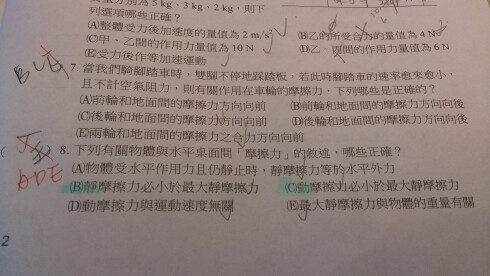 量分別為 5 kg、3 kg、2 kg,則下
列選項哪些正確?
(A)整體受力後加速度的量值為 2 m/s²
(B)乙的所受合力的量值為 4 N
(C)甲、乙間的作用力量值為 10 N
(D)乙、丙間的作用力量值為 6 N
(E)受力後作等加速運動
7. 當我們騎腳踏車時,雙腳不停地踩踏板,若此時腳踏車的速率愈來愈小,
且不計空氣阻力,則有關作用在車輪的摩擦力,下列哪些是正確的?
(A)前輪和地面間的摩擦力方向向前
(B)前輪和地面間的摩擦力方向向後
(C)後輪和地面間的摩擦力方向向前
(D)後輪和地面間的摩擦力方向向後
(E)兩輪和地面間的摩擦力之合力方向向前
( ) 8. 下列有關物體與水平桌面間「摩擦力」的敘述,哪些正確?
ADE
(A)物體受水平作用力且仍靜止時,靜摩擦力等於水平外力
(B)靜摩擦力必小於最大靜摩擦力
(C)動摩擦力必小於最大靜摩擦力
(D)動摩擦力與運動速度無關
(E)最大靜摩擦力與物體的重量有關
2